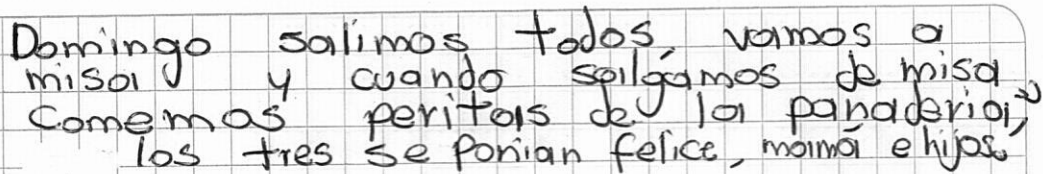 Domingo salimos todos, vamos a
misa y cuando salgamos de misa
comemos peritas de la panaderia,"
los tres se ponian felice, mamá e hijos.